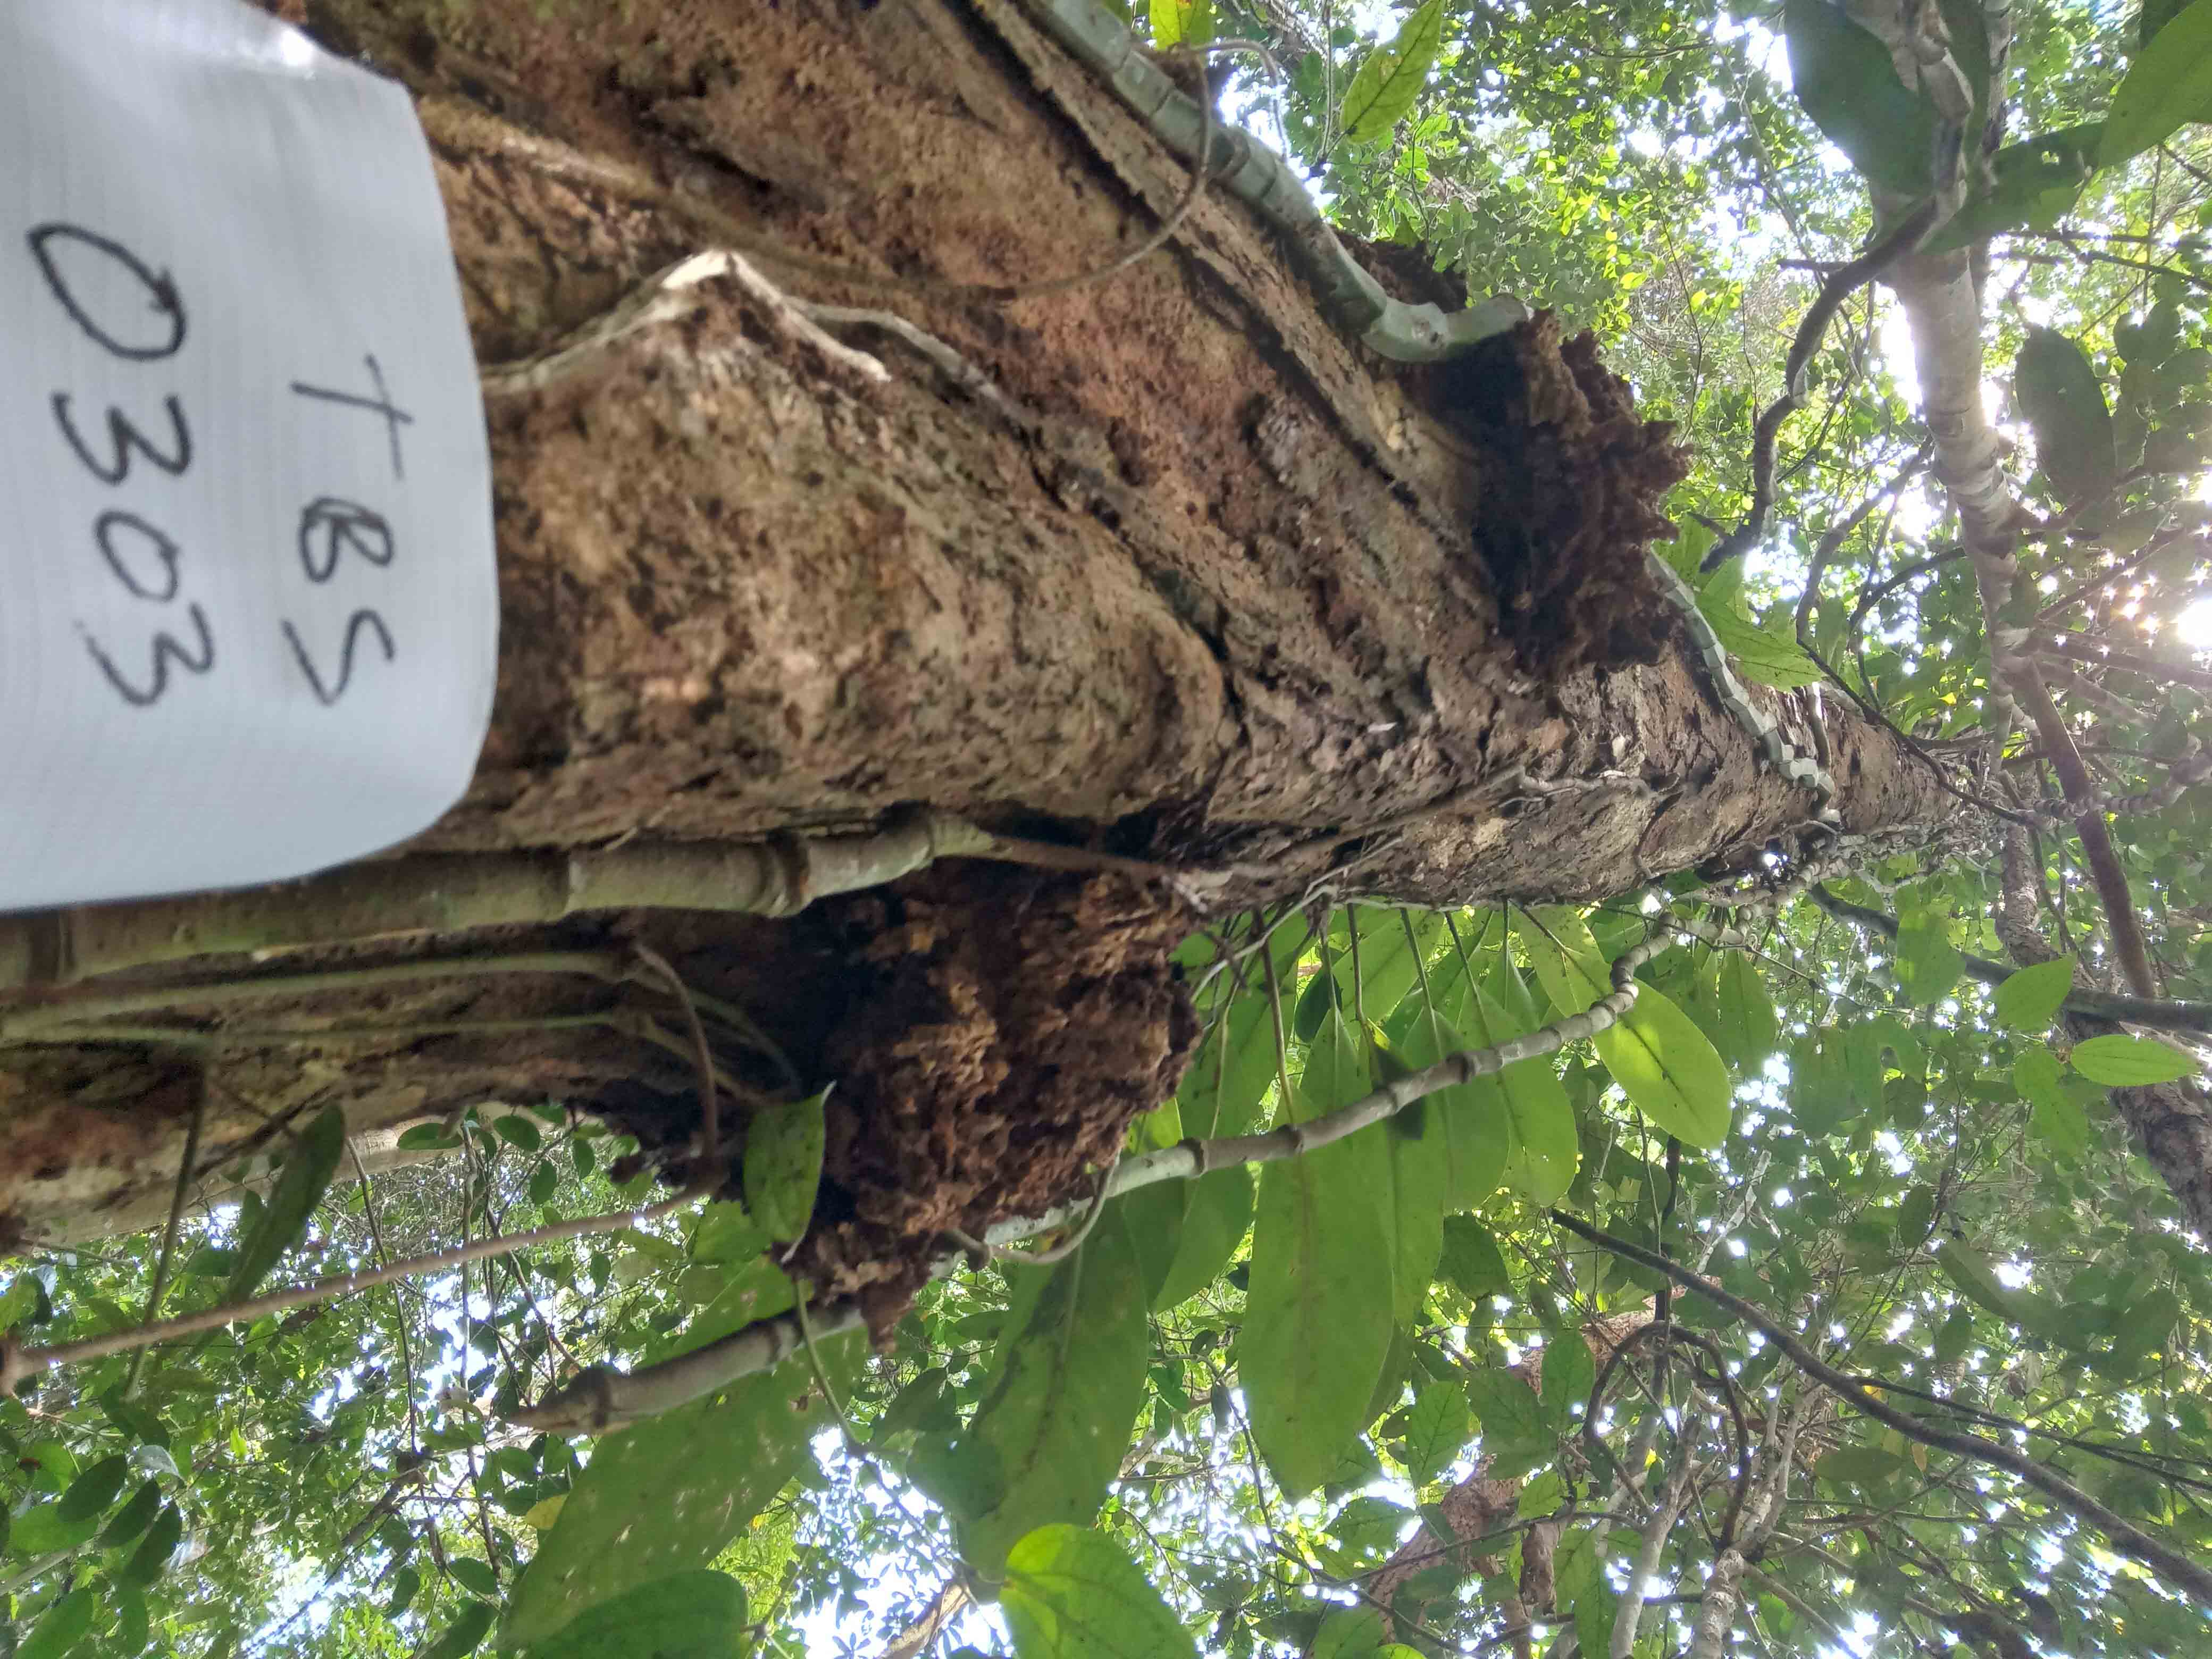 TBS
0303